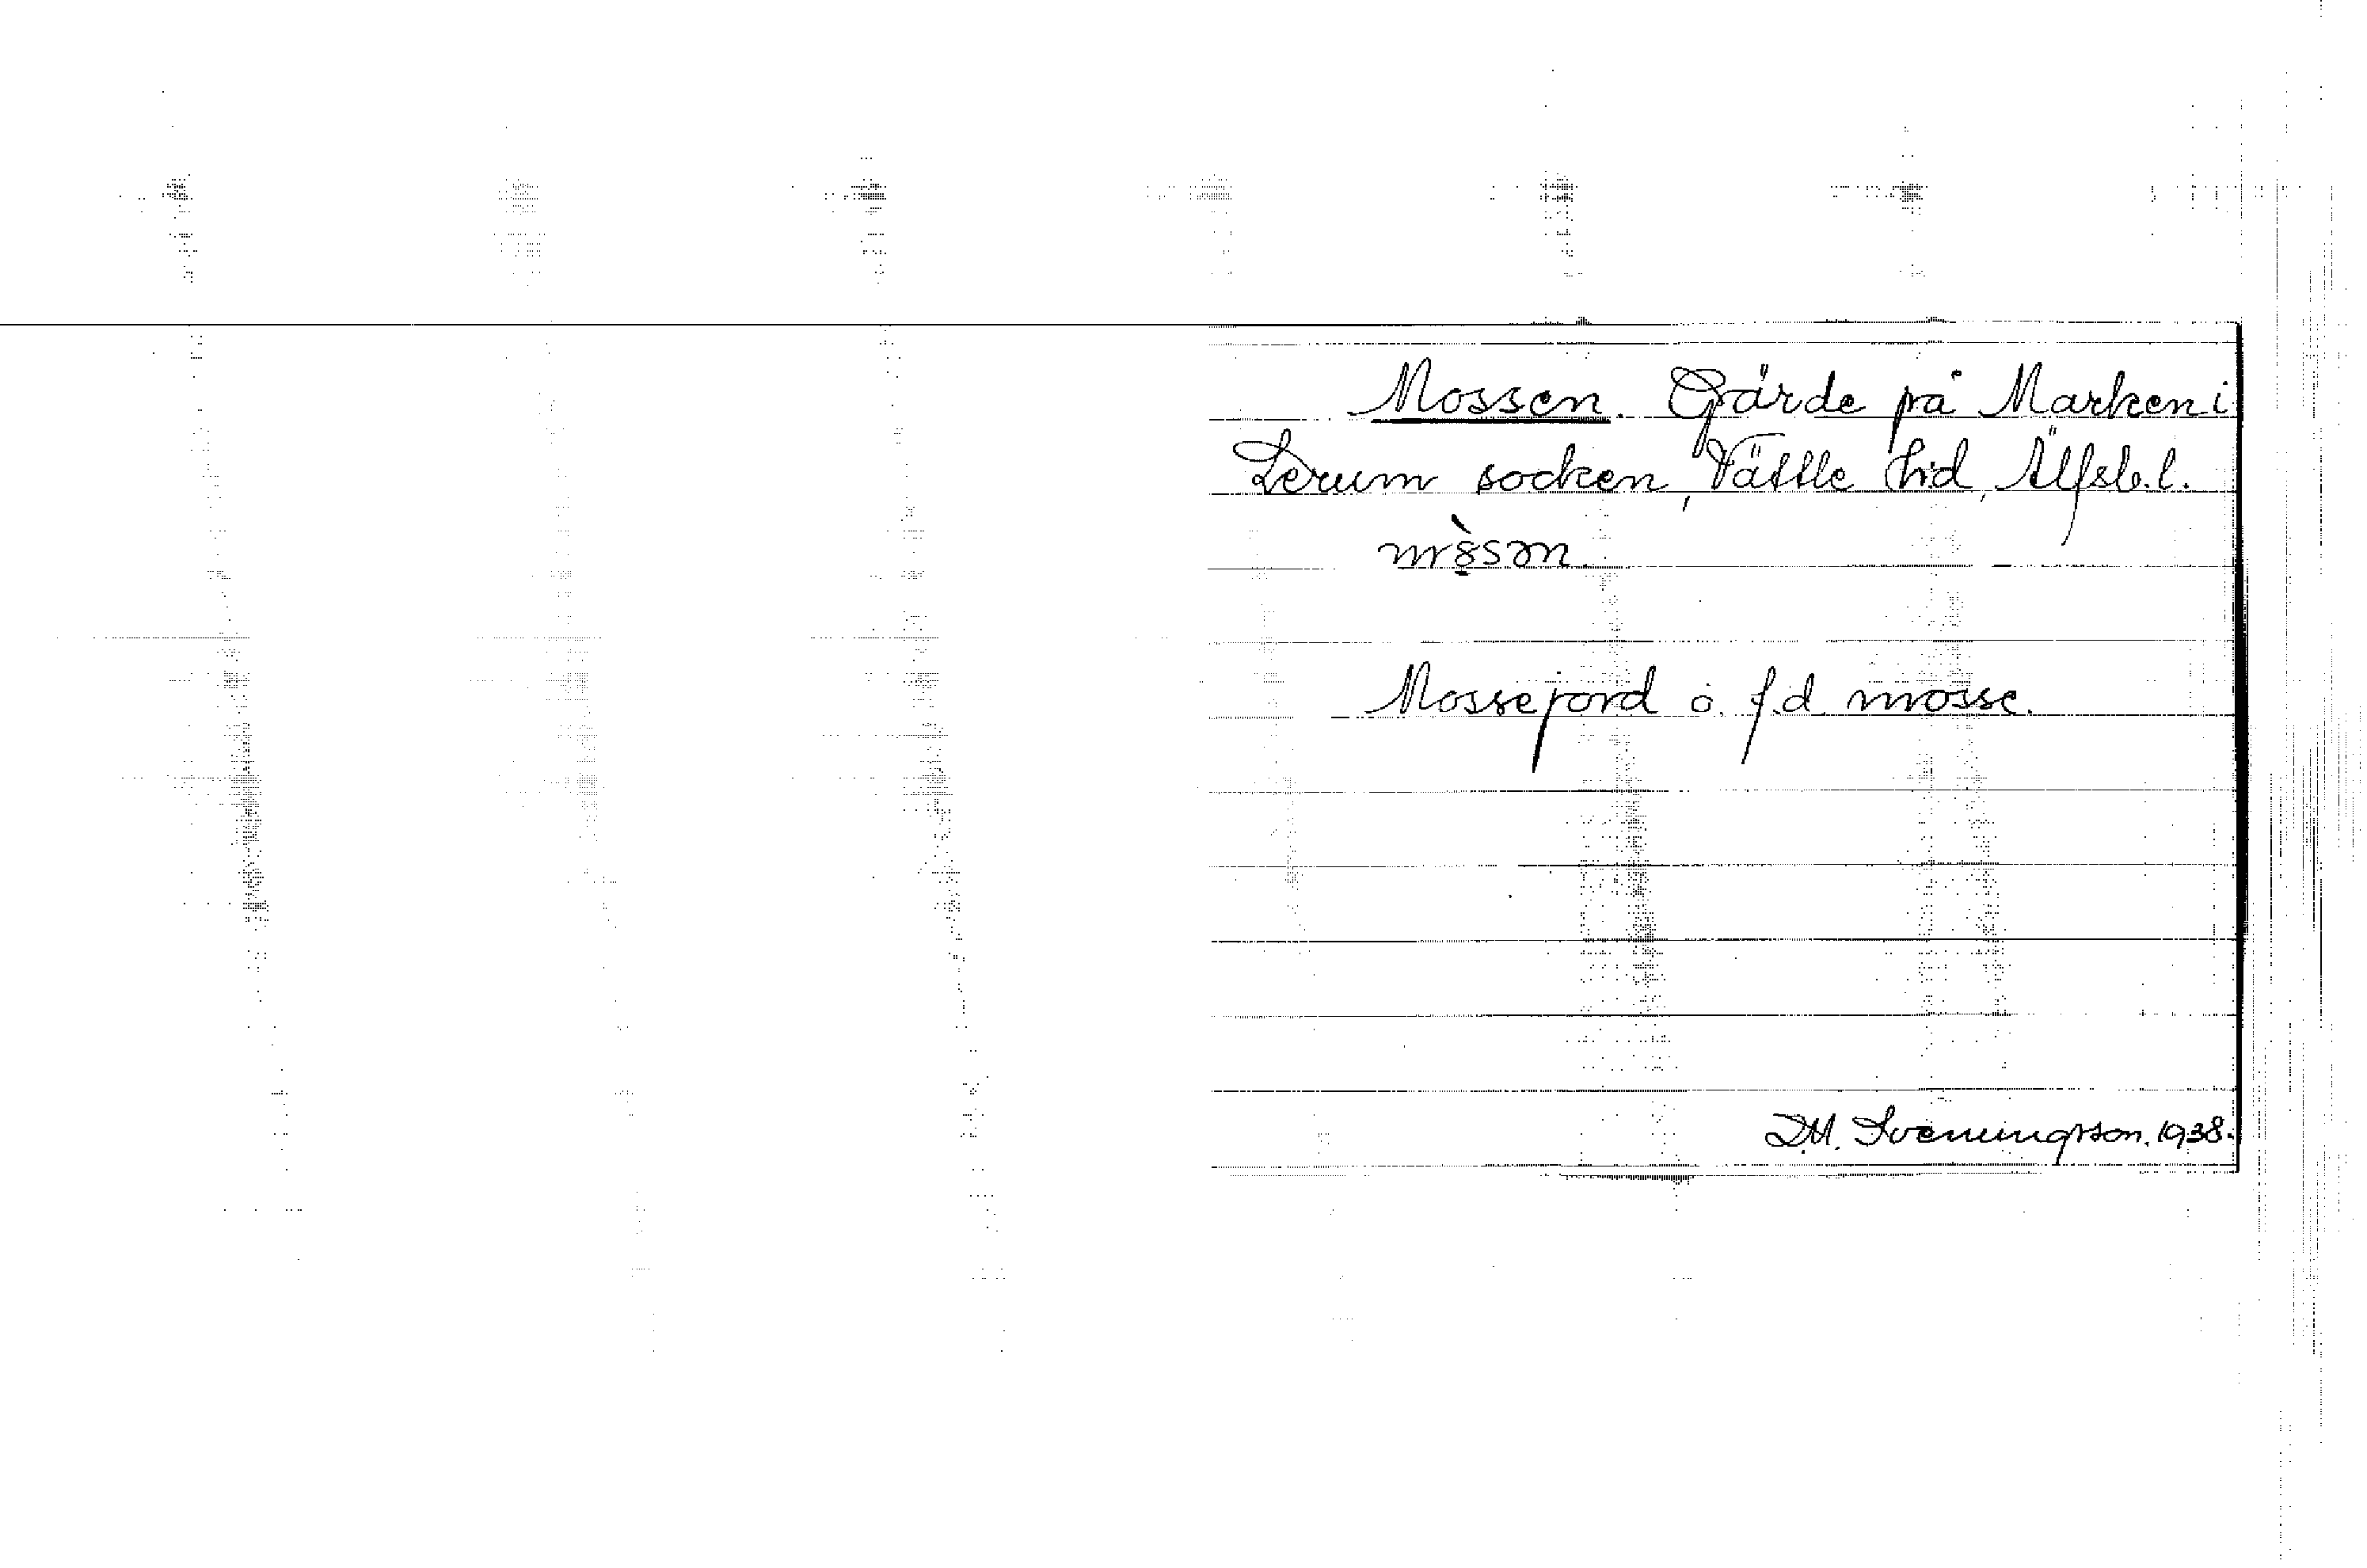 Mossen. Gärde på Marken i
Lerum socken, Vättle hd, Älfsb.l.
Mossejord o. f.d. mosse.
D.M. Sveningsson. 1938.